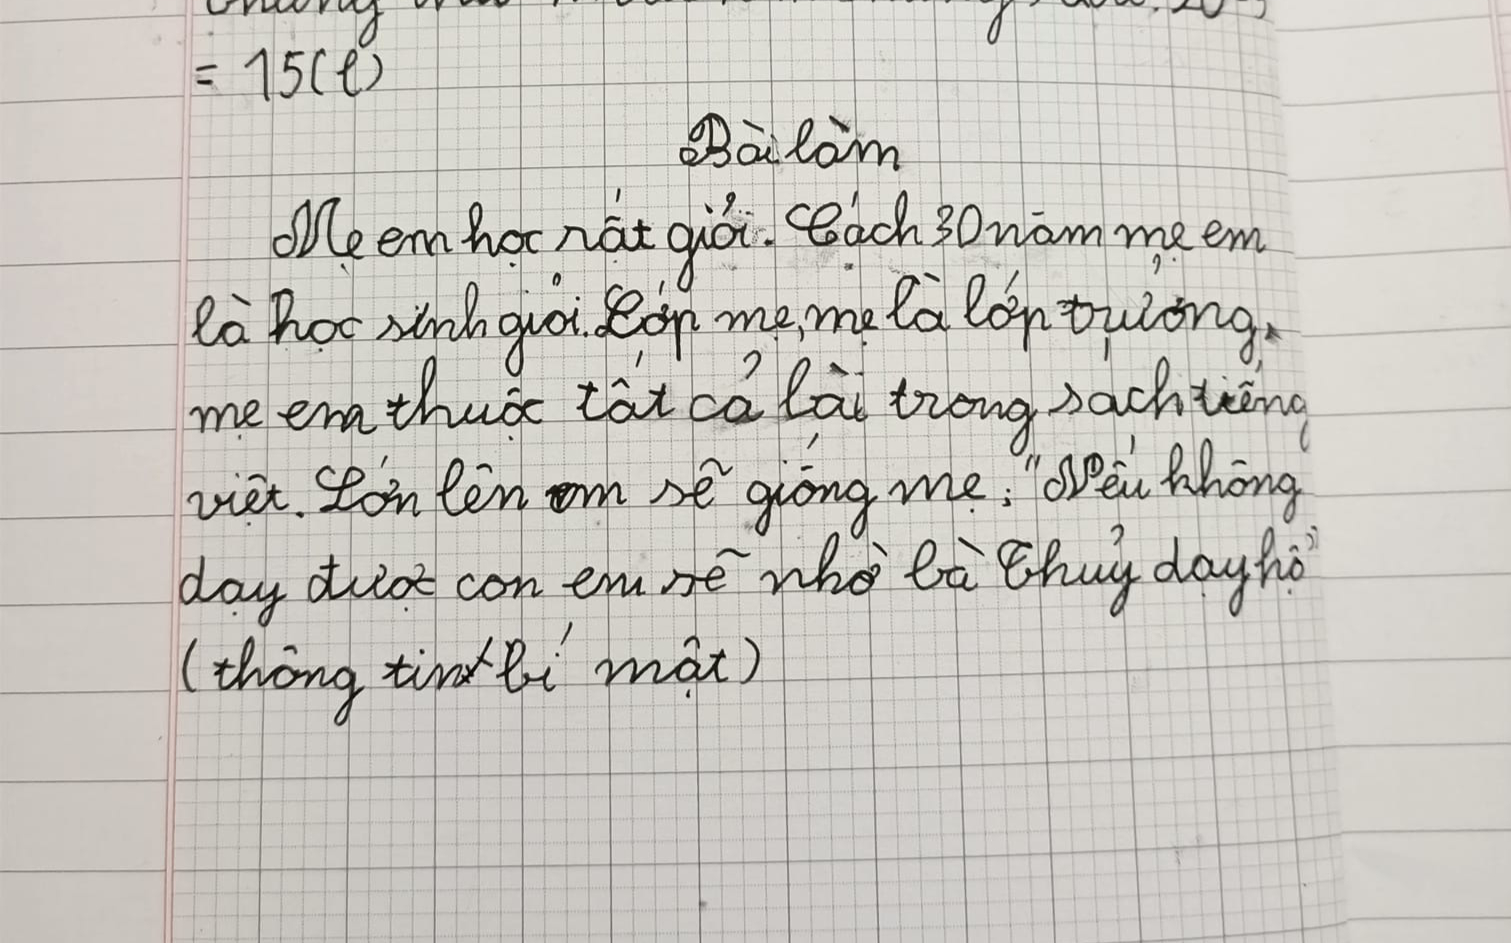 = 15(l)
Bài làm
Mẹ em học rất giỏi. Cách 30 năm mẹ em
là học sinh giỏi. Lớp mẹ, mẹ là lớp trưởng,
mẹ em thuộc tất cả bài trong sách tiếng
việt. Lớn lên em sẽ giống mẹ: "Nếu không
dạy được con em sẽ nhờ bà Thuỷ dạy hộ"
(thông tin bí mật)